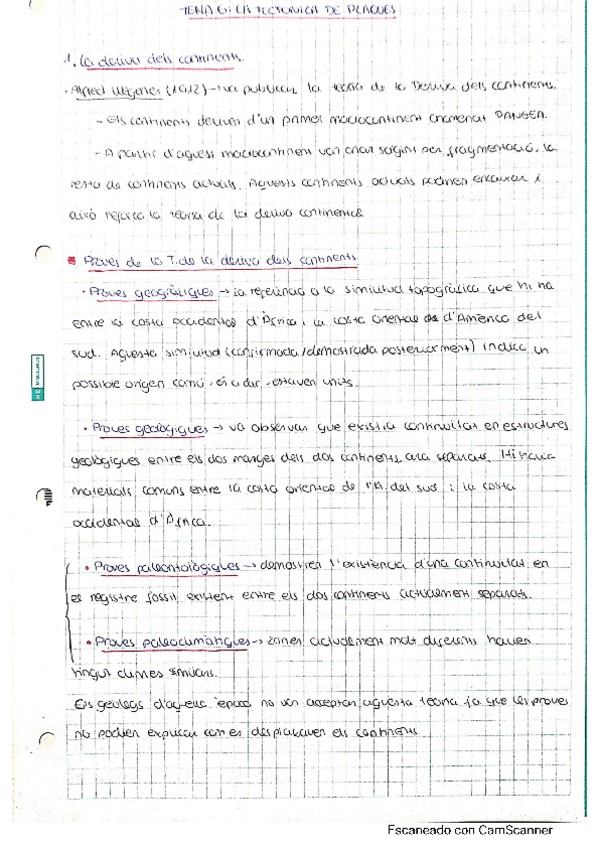 TEMA 6: LA TECTONICA DE PLAQUES
1. La deriva dels continents.
· Alfred Wegener (1912) → va publicar la teoria de la Deriva dels continents.
- Els continents deriven d'un primer macrocontinent anomenat PANGEA.
- A partir d'aquest macrocontinent van anar sorgint per fragmentació, la
resta de continents actuals. Aquests continents actuals podrien encaixar i
això reforça la teoria de la deriva continental
Proves de la T. de la deriva dels continents
· Proves geogràfiques → fa referència a la similitud topogràfica que hi ha
entre la costa occidental d'Àfrica i la costa oriental de d'Amèrica del
sud. Aquesta similitud (confirmada/demostrada posteriorment) indica un
possible origen comú, és a dir, estaven units.
· Proves geològiques → va observar que existia continuitat en estructures
geològiques entre els dos marges dels dos continents ara separats. Hi havia
materials comuns entre la costa oriental de l'A. del sud i la costa
occidental d'Àfrica.
· Proves paleontològiques → demostren l'existència d'una continuitat en
el registre fossil existent entre els dos continents actualment separats.
· Proves paleoclimàtiques → zones actualment molt diferents havien
tingut climes similars.
Els geòlegs d'aquella època no van acceptar aquesta teoria ja que les proves
no podien explicar com es desplaçaven els continents.
Escaneado con CamScanner